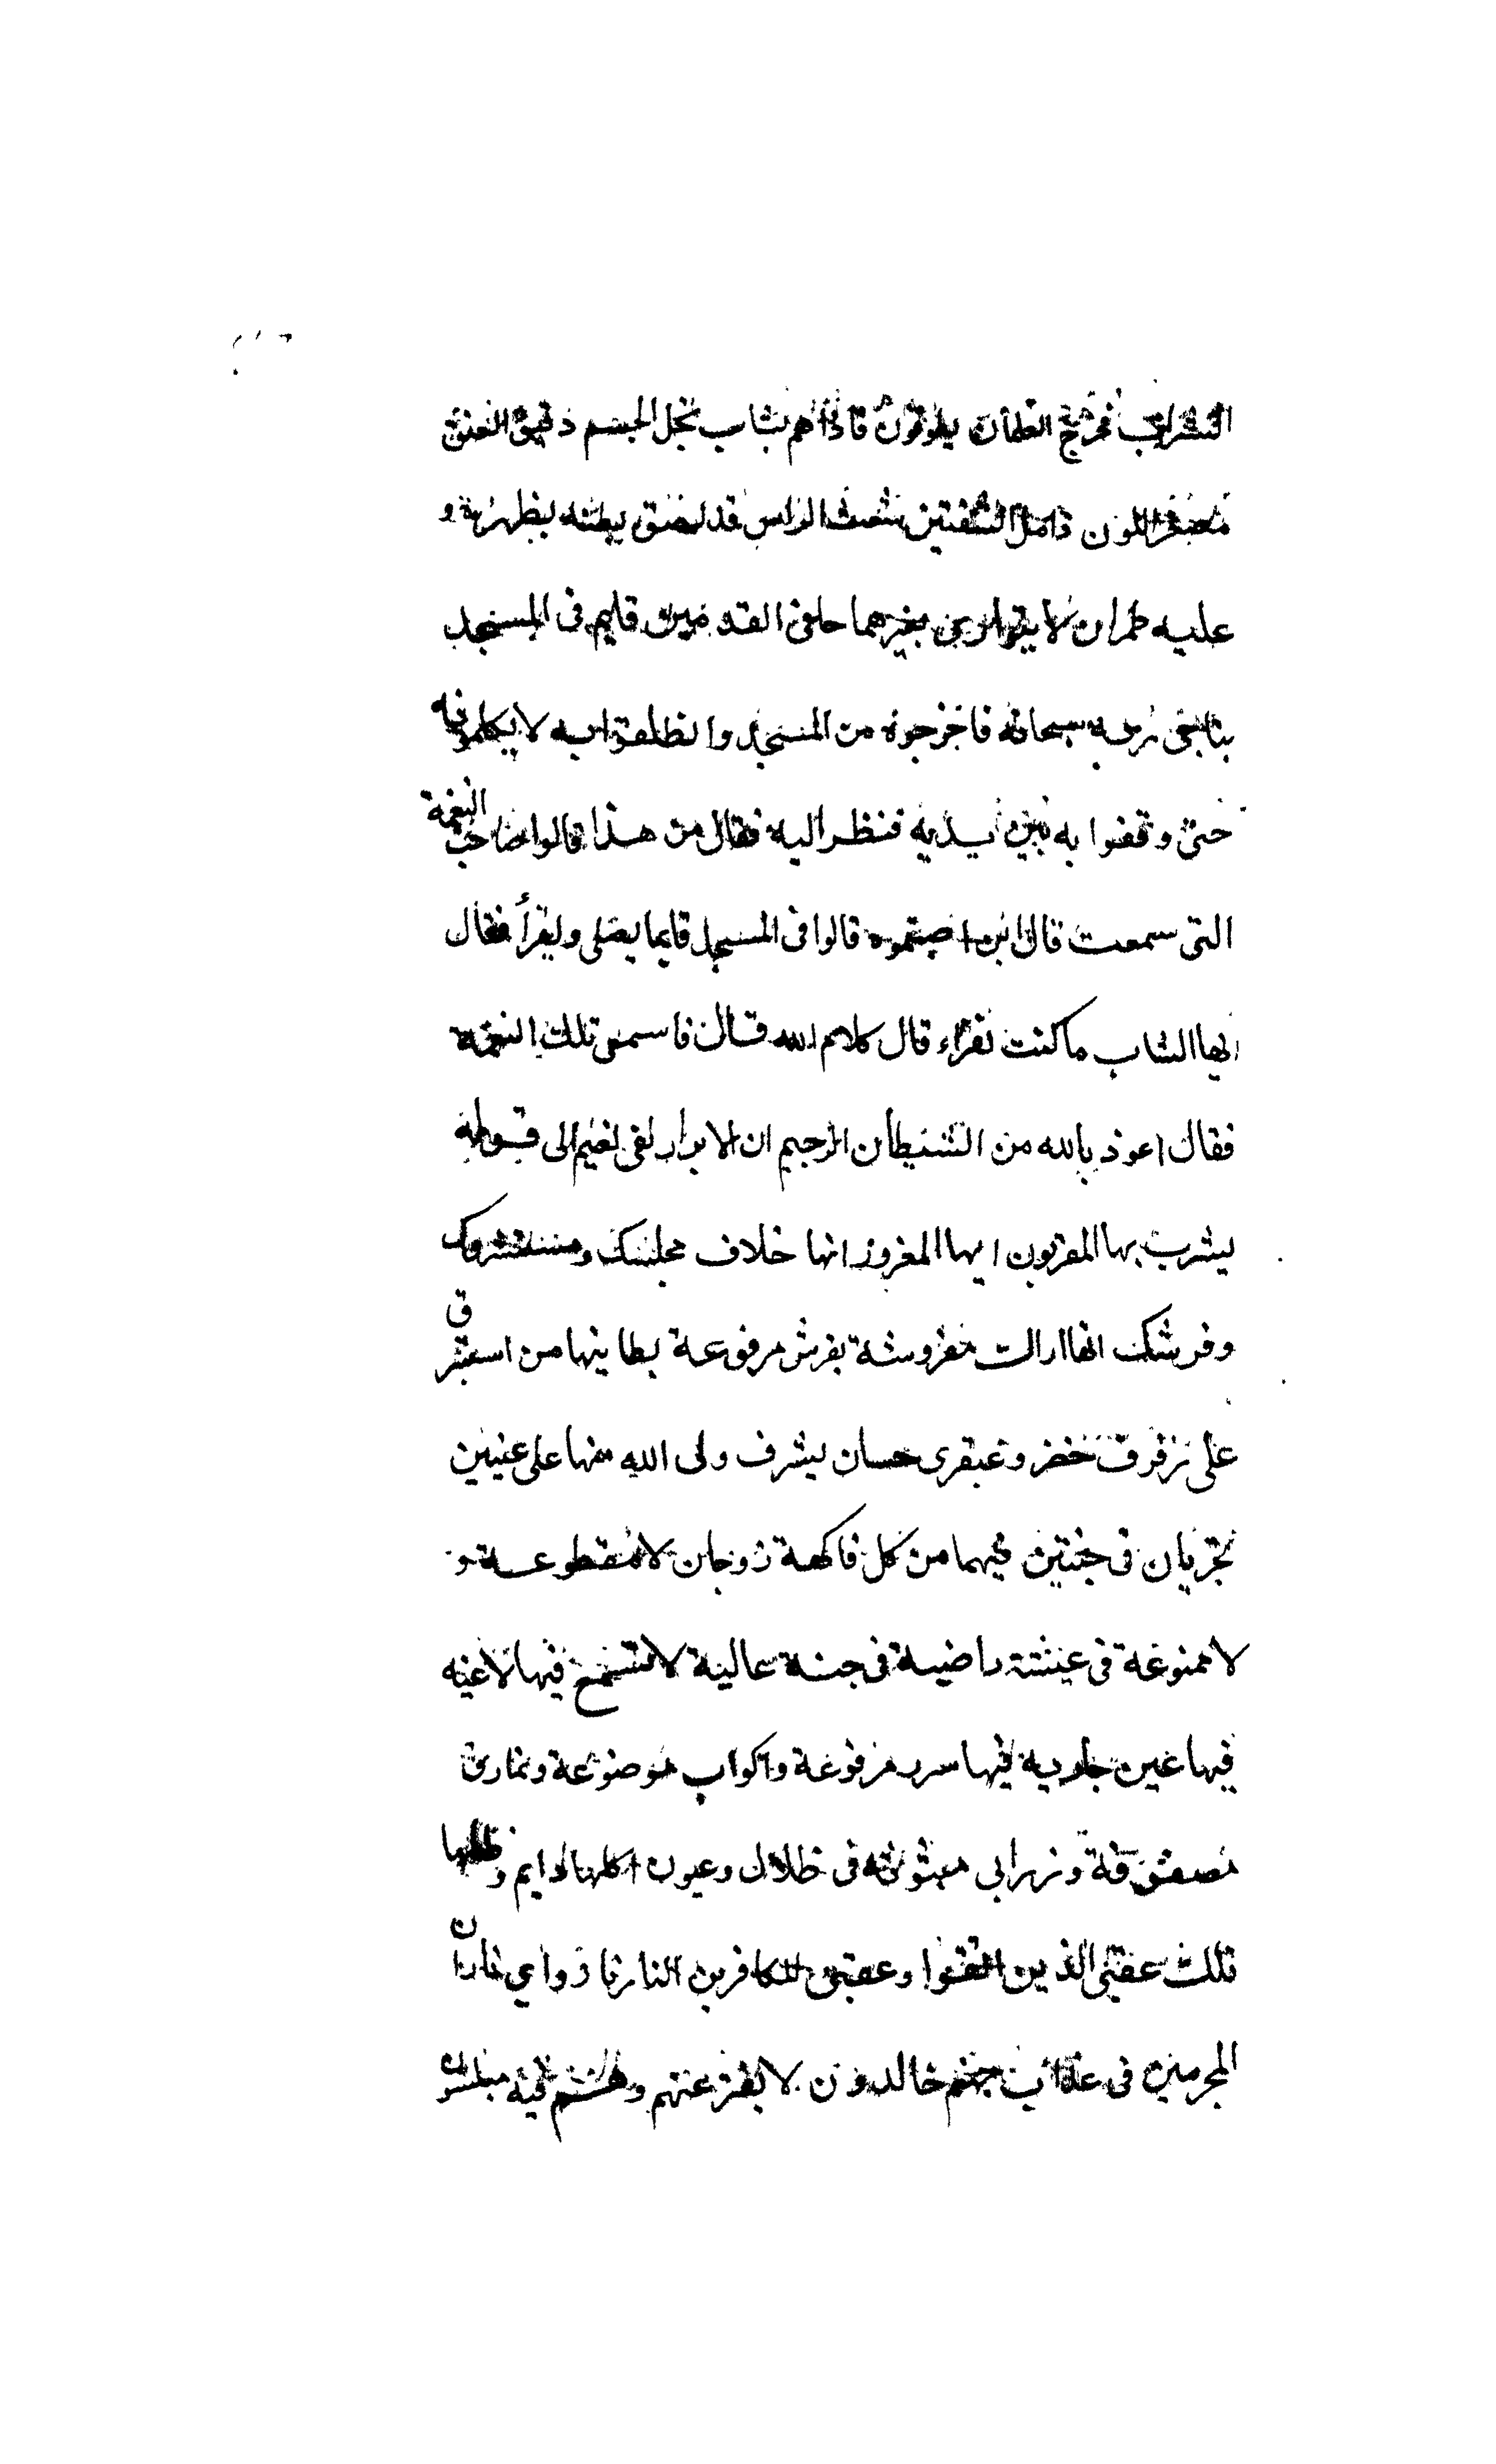 الشراب فخرج الغلمان يطوفون فاذا هم بشاب نحل الجسم دقيق العنق
مصفر اللون ذابل الشفتين شعث الراس قد لصق بطنه بظهره و
عليه طمران لا يتوارى بغيرهما حافى القدمين قايم فى المسجد
يناجى ربه سبحانه فاخرجوه من المسجد وانطلقوا به لا يكلمونه
حتى وقفوا به بين يديه فنظر اليه فقال من هذا قالوا صاحب النغمة
التى سمعت قال اين اصبتموه قالوا فى المسجد قايما يصلى ويقرأ فقال
ايها الشاب ما كنت تقراء قال كلام الله قال فاسمعنى تلك النغمة
فقال اعوذ بالله من الشيطان الرجيم ان الابرار لفى نعيم الى قوله
يشرب بها المقربون ايها المغرور انها خلاف مجلسك ومستشرفك
وفرشك انها ارائك مفروشة بفرش مرفوعة بطاينها من استبرق
على رفرف خضر وعبقرى حسان يشرف ولى الله منها على عينين
تجريان فى جنتين فيهما من كل فاكهة زوجان لا مقطوعة و
لا ممنوعة فى عيشة راضية فى جنة عالية لا تسمع فيها لاغيه
فيها عين جارية فيها سرر مرفوعة واكواب موضوعة ونمارق
مصفوفة وزرابى مبثوثه فى ظلال وعيون اكلها دايم وظلها
تلك عقبى الذين اتقوا وعقبى للكافرين النار نار واى نار ان
المجرمين فى عذاب جهنم خالدون لا يفتر عنهم وهم فيه مبلسون